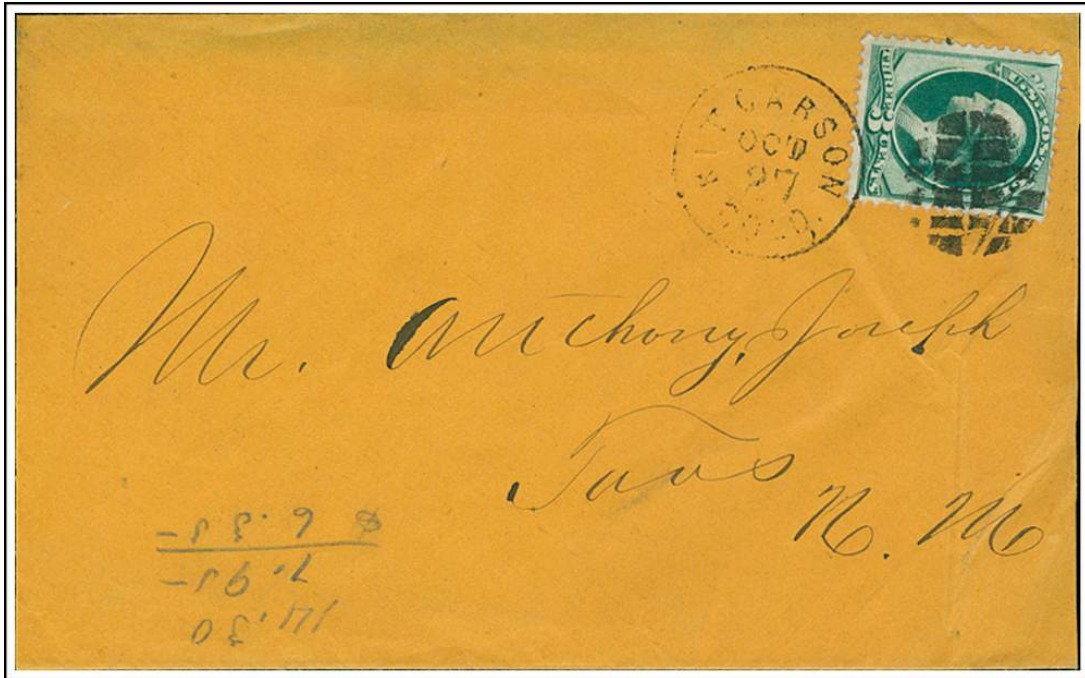 KIT CARSON
OCT
27
COLO.
U.S. POSTAGE
THREE 3 CENTS
Mr. Anthony Joseph
Taos
N. M
14.30
7.95-
$ 6.35-